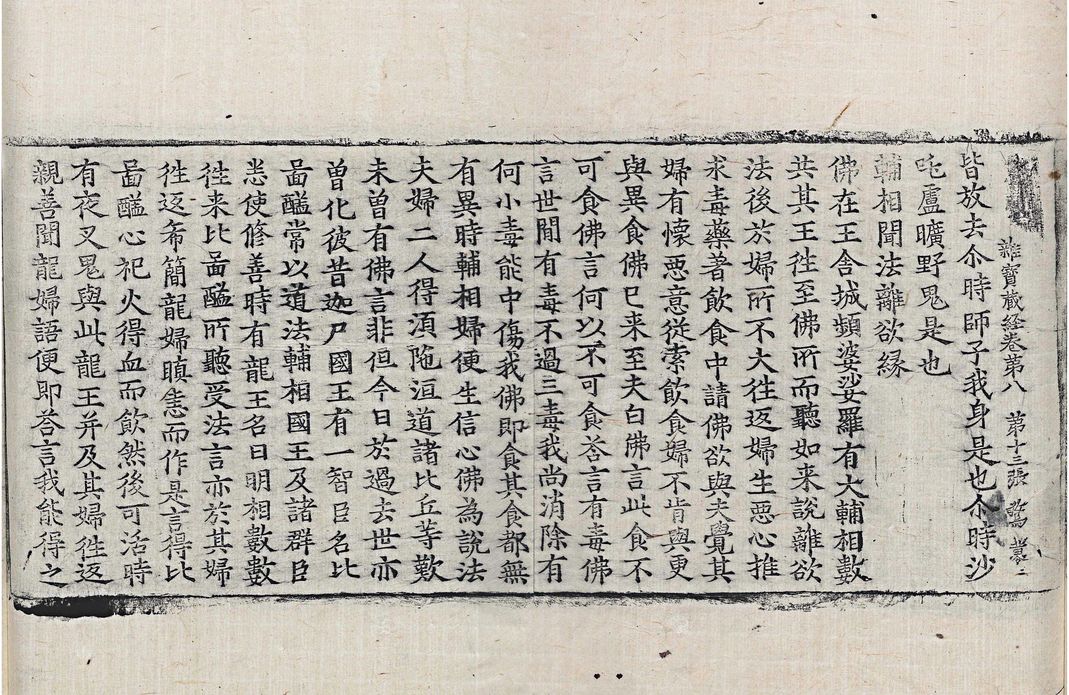 雜寶蔵経卷第八 第十三張
皆放去尒時師子我身是也尒時沙
吒盧曠野鬼是也
輔相聞法離欲縁
佛在王舎城頻婆娑羅有大輔相數
共其王徃至佛所而聽如来說離欲
法後於婦所不大徃返婦生惡心推
求毒藥著飲食中請佛欲與夫覺其
婦有懷惡意従索飲食婦不肯與更
與異食佛已来至夫白佛言此食不
可食佛言何以不可食荅言有毒佛
言世間有毒不過三毒我尚消除有
何小毒能中傷我佛即食其食都無
有異時輔相婦便生信心佛為說法
夫婦二人得湏陁洹道諸比丘等歎
未曽有佛言非但今日於過去世亦
曽化彼昔迦尸國王有一智臣名比
啚醯常以道法輔相國王及諸群臣
悉使修善時有龍王名曰明相數數
徃来比啚醯所聽受法言亦於其婦
徃返希簡龍婦瞋恚而作是言得比
啚醯心祀火得血而飲然後可活時
有夜叉鬼與此龍王并及其婦徃返
親善聞龍婦語便即荅言我能得之